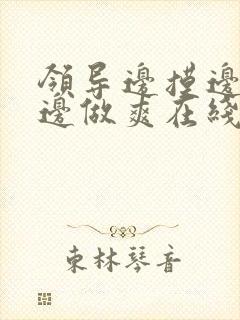 領导邊摸邊
邊做爽在綫
東林琴音